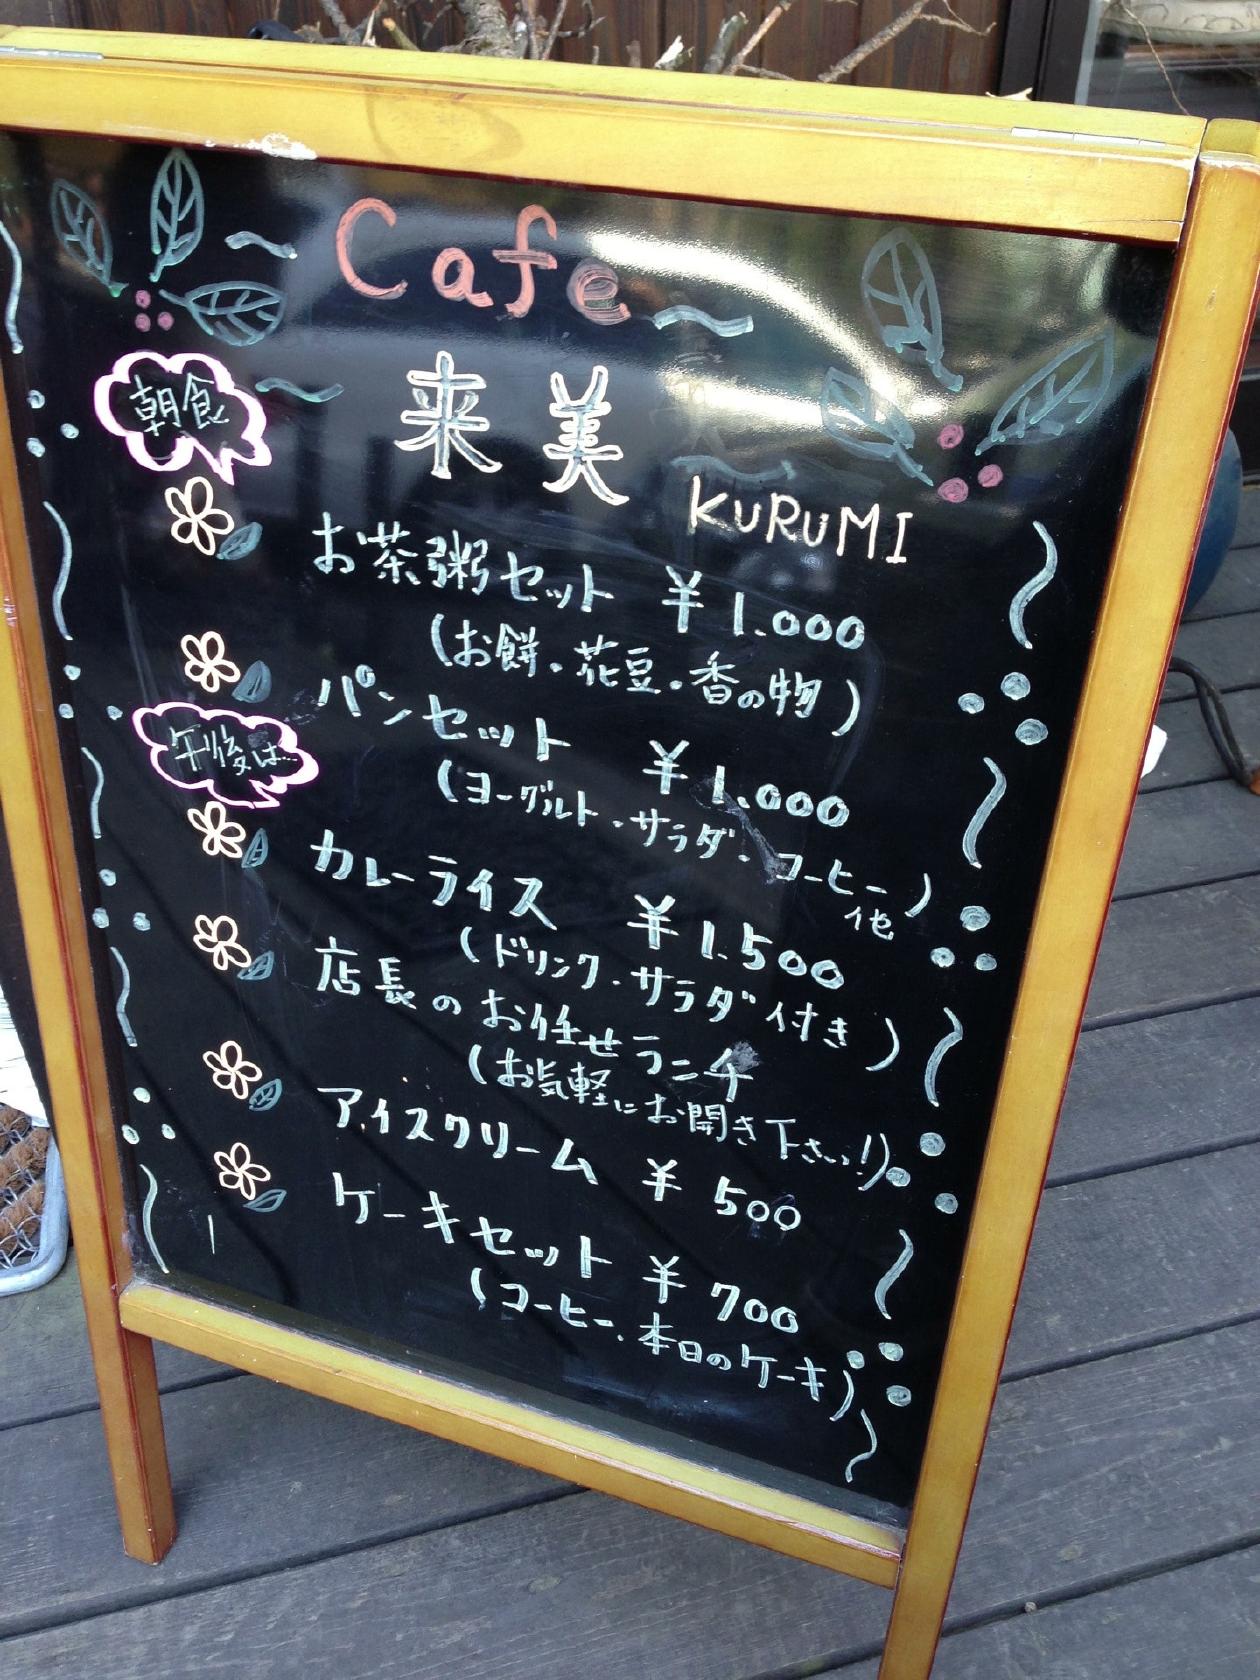 Cafe
朝食
来美
KURUMI
お茶粥セット ¥1.000
(お餅・花豆・香の物)
パンセット ¥1.000
(ヨーグルト・サラダ・コーヒー他)
午後は…
カレーライス ¥1.500
(ドリンク・サラダ付き)
店長のお任せランチ
(お気軽にお聞き下さい!)
アイスクリーム ¥500
ケーキセット ¥700
(コーヒー・本日のケーキ)